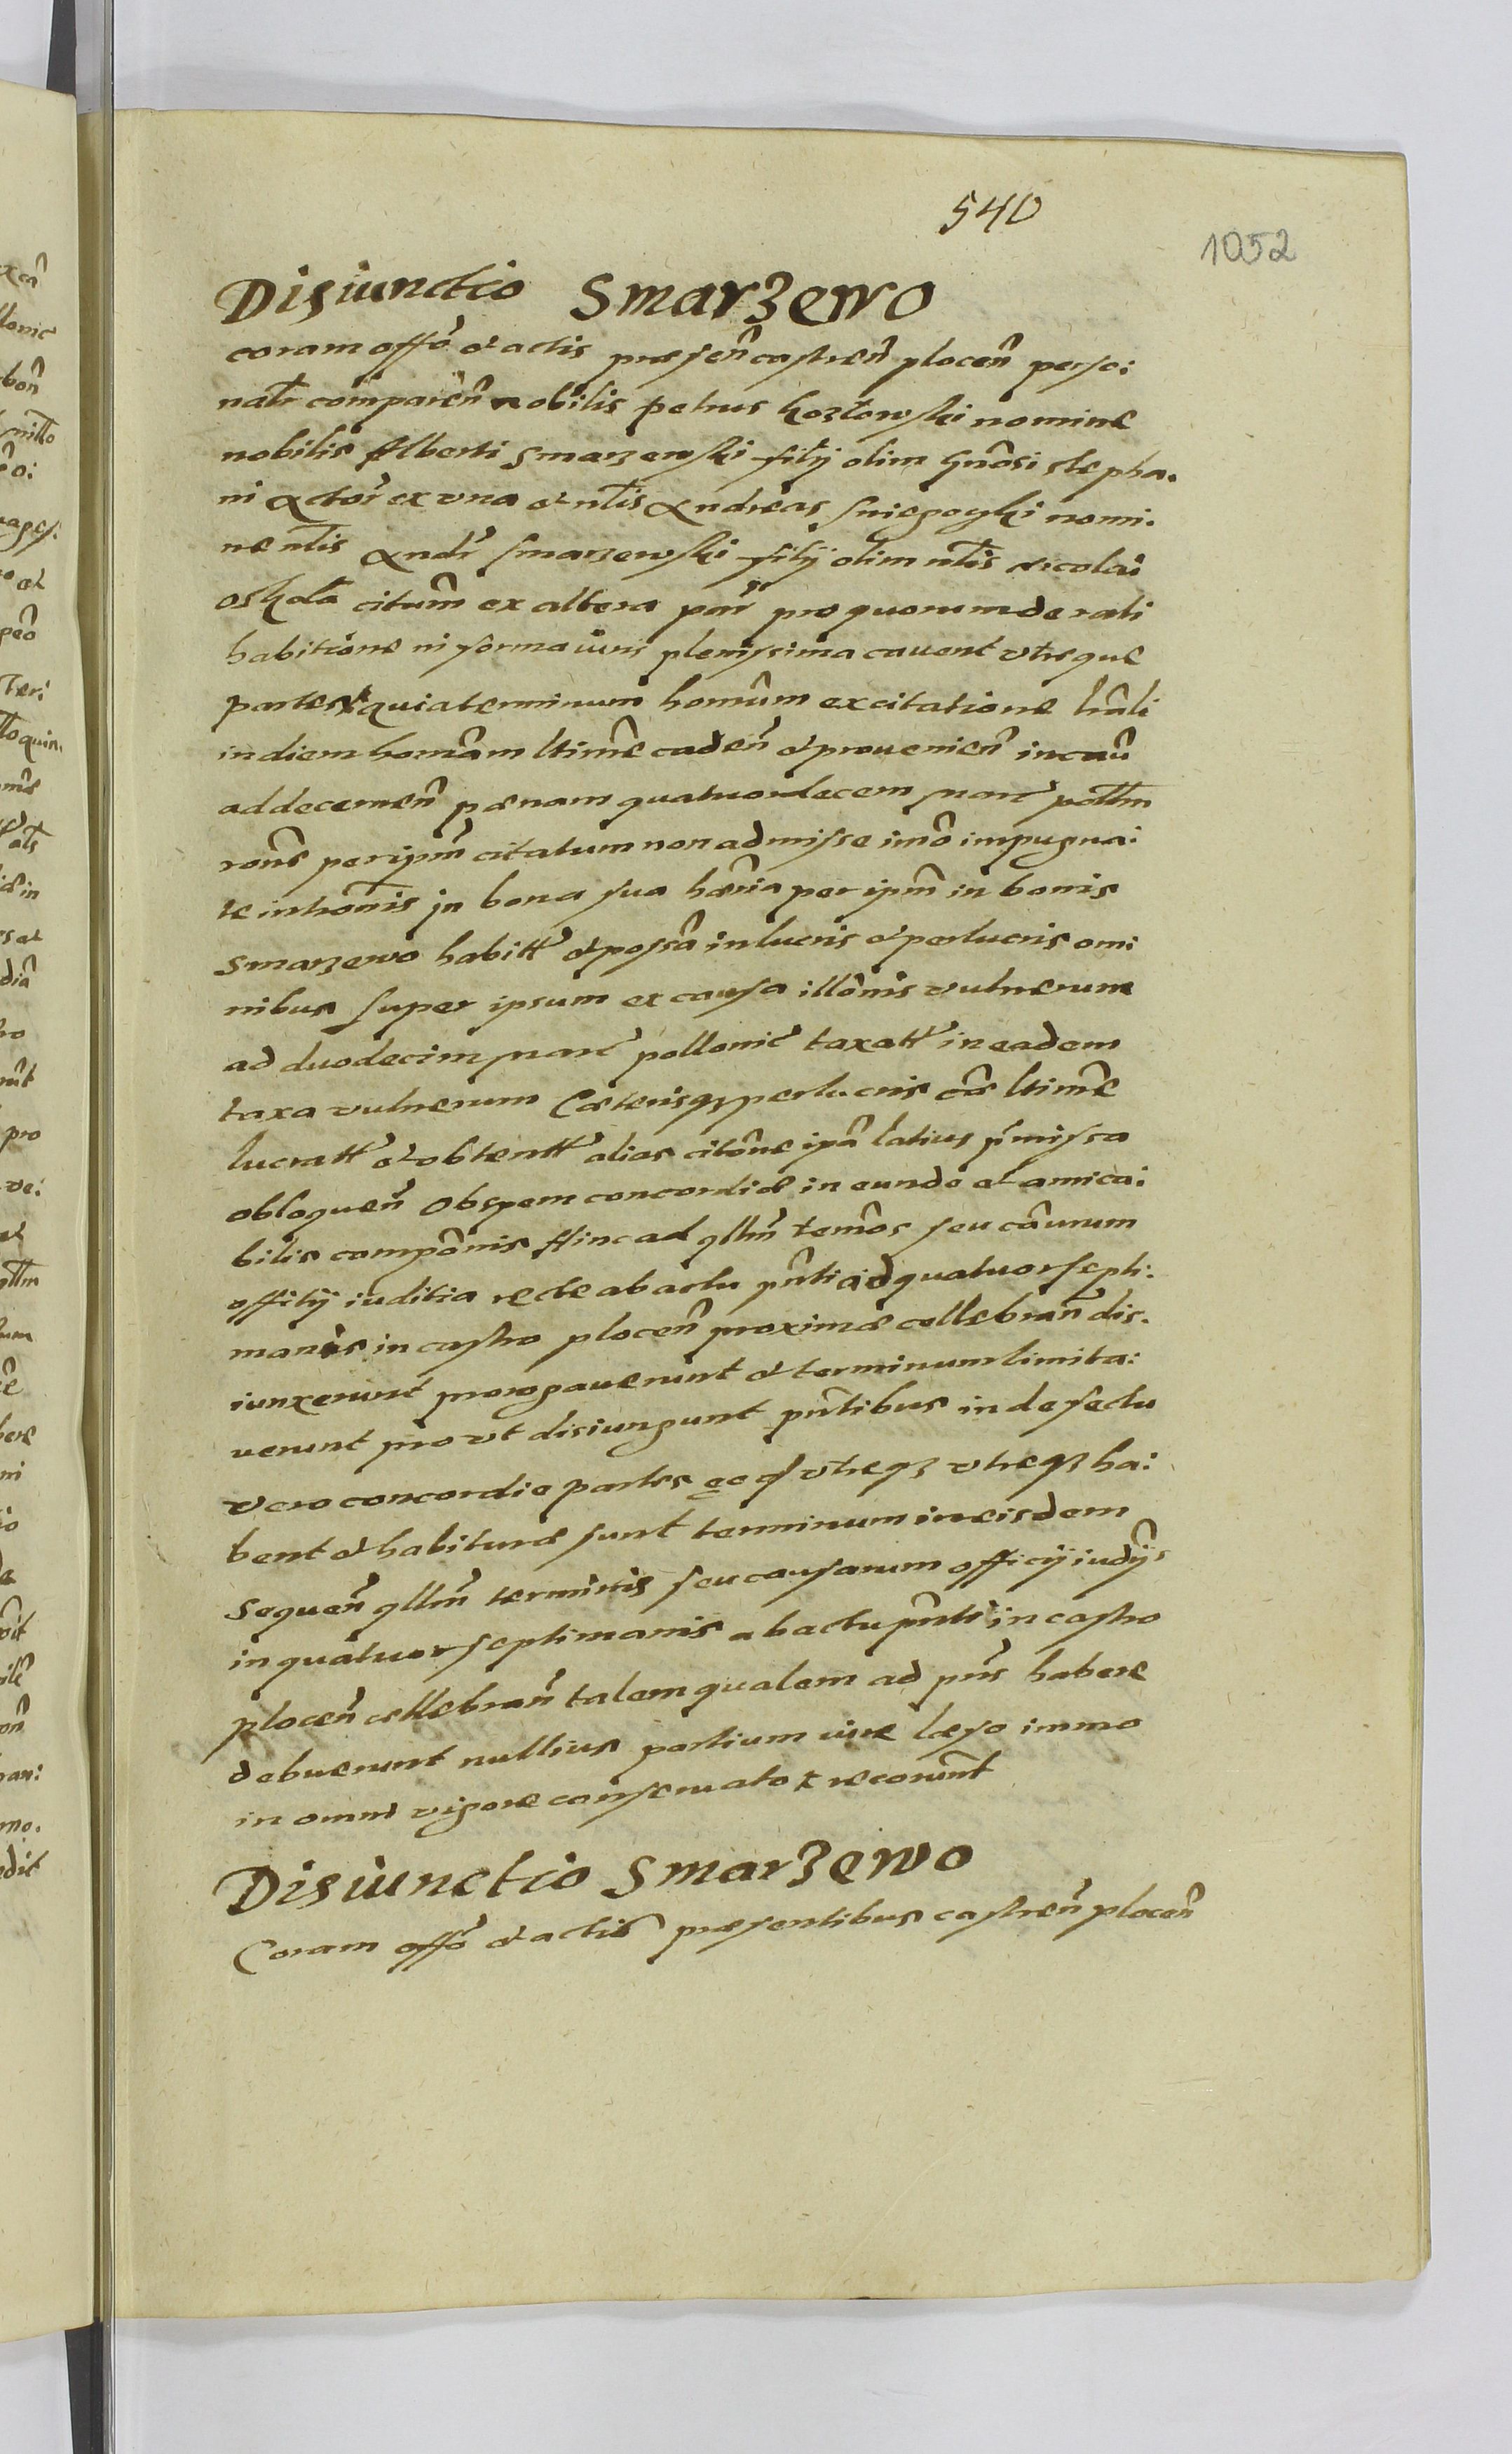 540
1052
Disiunctio Smarzewo
coram offo et actis præsen̄ castren̄ plocen̄ perso:
nalr̄ comparen̄ nobilis petrus kozłowski nomine
nobilis Alberti Smarzewski filij olim Gnōsi stepha.
ni actor̄ ex vna et nlis Andreas sniegocki nomi.
ne nlis Andr̄ smarzewski filij olim nlis nicolai
citum̄ ex altera par̄ pro quorum de rati
habitione in forma iuris plenissima cavent vtreque
partes quia terminum homum̄ ex citatione hnli
in diem homām ltime caden̄ et provenien̄ in caū
ad decernen̄ pænam quatuordecem mar̄ pollm
rons per ipm̄ citatum non admissæ imo impugna:
te intromis in bona sua hæria per ipm̄ in bonis
Smarzewo habitt et possā in lucris et perlucris omi
nibus super ipsum ex causa illonis vulnerum
ad duodecim mar̄ pollonic̄ taxatt in eadem
taxa vulnerum Cæterisqz perlucris cās ltime
lucratt et obtentt alias citōne ipā latius pmissa
obloquen̄ Ob spem concordiæ in eundo et amica:
bilis compōnis Hinc ad qllm̄ temōs seu cārum
offitij iuditia recte ab actu pn̄ti ad quatuor septi:
manas in castro plocen̄ proxime cellebran̄ dis.
iunxerunt prorogaverunt et terminum limita:
verunt prout disiungunt pn̄tibus in defectu
vero concordie partes eæd vtreqz vtreqz ha:
bent et habituræ sunt terminum in eisdem
sequen̄ qllm̄ terminis seu causarum officij iudijs
in quatuor septimanis ab actu pn̄ti in castro
plocen̄ cellebran̄ talem qualem ad pn̄s habere
debuerunt nullius partium iure læso immo
in omni vigore conservato recorunt
Disiunctio Smarzewo
Coram offo et actis præsentibus castren̄ plocen̄